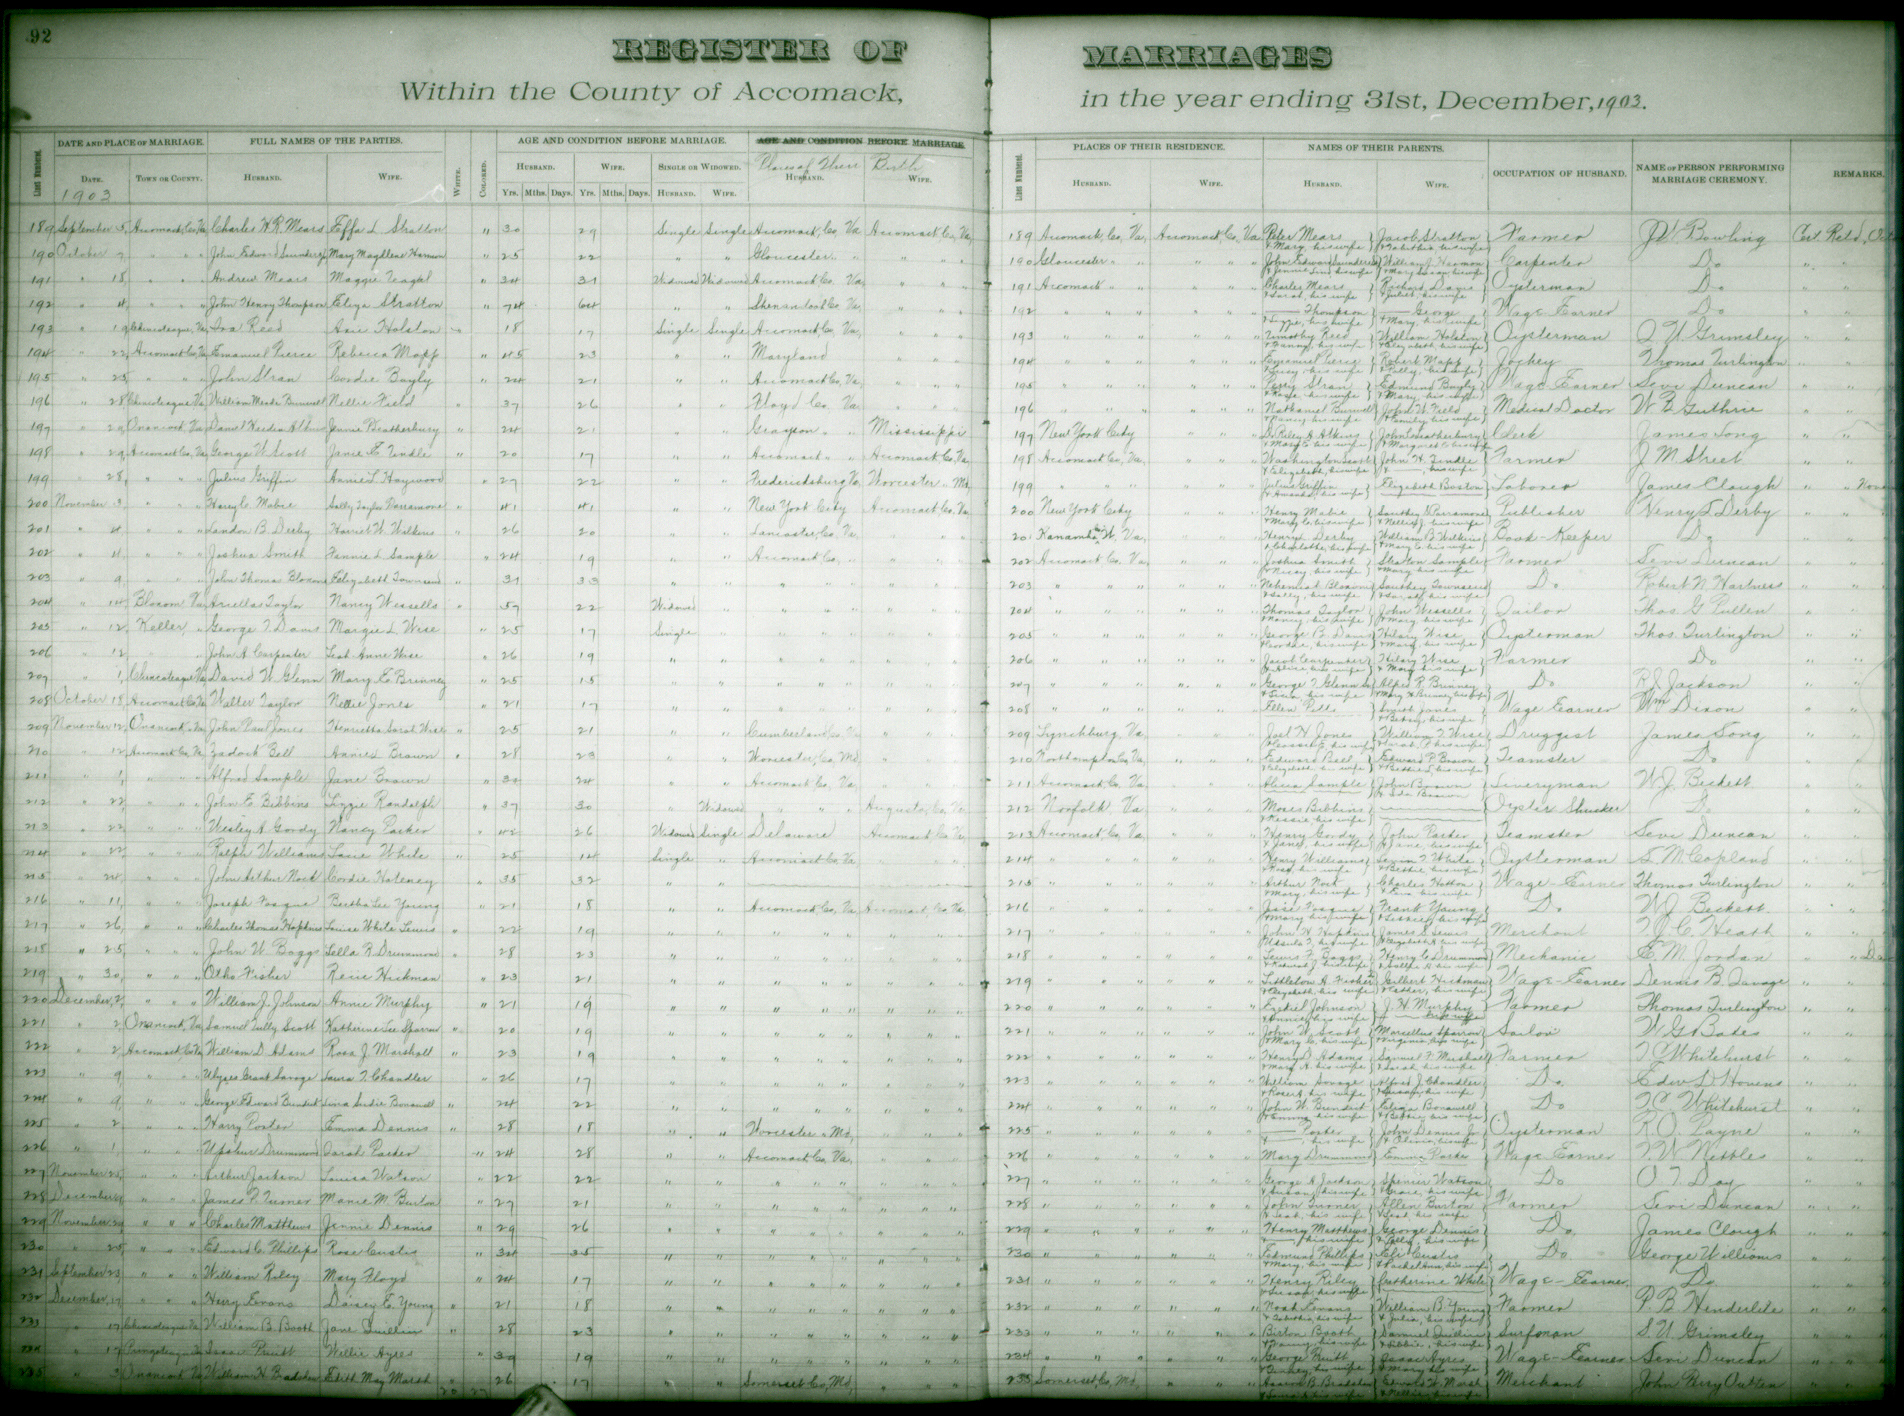 92
REGISTER OF MARRIAGES
Within the County of Accomack, in the year ending 31st, December, 1903.
Lines Numbered. DATE AND PLACE OF MARRIAGE. FULL NAMES OF THE PARTIES. WHITE. COLORED. AGE AND CONDITION BEFORE MARRIAGE. AGE AND CONDITION BEFORE MARRIAGE.
DATE. TOWN OR COUNTY. HUSBAND. WIFE. HUSBAND. WIFE. SINGLE OR WIDOWED. Places of Their Birth
1903 Yrs. Mths. Days. Yrs. Mths. Days. HUSBAND. WIFE. HUSBAND. WIFE.
Lines Numbered. PLACES OF THEIR RESIDENCE. NAMES OF THEIR PARENTS. OCCUPATION OF HUSBAND. NAME OF PERSON PERFORMING MARRIAGE CEREMONY. REMARKS.
HUSBAND. WIFE. HUSBAND. WIFE.
189 September 5, Accomack, Co, Va Charles H.R. Mears Effa L Stratton " 30 29 Single Single Accomack, Co, Va Accomack Co, Va,
190 October 7 " " " John Edward Mary Magdlene Harmon " 25 22 " " Gloucester " " " "
191 " 18 " " " Andrew Mears Maggie Teagal " 34 31 Widowed Widowed Accomack Co, Va, " " "
192 " 4 " " " John Henry Thompson Eliza Stratton " 74 64 " " Shenandoah Co, Va " " "
193 " 19 Chincoteague, Va Ira Reed Holston " 18 17 Single Single Accomack Co, Va, " " "
194 " 22 Accomack Co, Va Emanuel Pierce Rebecca Mapp " 45 23 " " Maryland " " "
195 " 25 " " " John Stran Cordie Bayly " 24 21 " " Accomack Co, Va, " " "
196 " 28 Chincoteague Va William Meade Burwell Nellie Field " 37 26 " " Floyd Co, Va " " "
197 " 29 Onancock Va Daniel Jennie Weatherbury " 24 21 " " Grayson " " Mississippi
198 " 29 Accomack Co, Va George W Scott Janie E Tindle " 20 17 " " Accomack " " Accomack Co, Va,
199 28 " " " Julius Griffin Annie L Haywood " 27 22 " " Fredericksburg Va Worcester " Md,
200 November 3 " " " Harry C. Mabie Sally Taylor Parramore " 41 41 " " New York City Accomack Co, Va,
201 " 4 " " " Landon B Derby Harriet W Wilkins " 26 20 " " Lancaster Co, Va " " "
202 " 4 " " " Joshua Smith Fannie L Sample " 24 19 " " Accomack Co, " " " "
203 " 9 " " " John Thomas Bloxom Elizabeth Townsend " 31 33 " " " " " " " "
204 " 14 Bloxom Va Taylor Nancy Wessells " 57 22 Widowed " " " " " " "
205 " 12 Keller " George T Davis Margie L Wise " 25 17 Single " " " " " " "
206 " 12 " " John A Carpenter Leah Anne Wise " 26 19 " " " " " " " "
207 " 1 Chincoteague Va David W Glenn Mary E Brinney " 25 15 " " " " " " " "
208 October 18 Accomack Co Va Walter Taylor Nettie Jones " 21 17 " " " " " " " "
209 November 12 Onancock Va John Paul Jones Henrietta Sarah Wise " 25 21 " " Cumberland Co, Va " " "
210 " 12 Accomack Co, Va Zadock Bell Annie L Brown " 28 23 " " Worcester, Co, Md " " "
211 " 1 " " " Alfred Sample Jane Brown " 32 24 " " Accomack Co, Va, " " "
212 " 22 " " " John E Bibbins Lizzie Randolph " 37 30 " Widowed " " " Augusta, Co, Va,
213 " 22 " " " Wesley A Gordy Nancy Parker " 42 26 Widowed Single Delaware Accomack Co, Va,
214 " 22 " " " Ralph Williams White " 25 14 Single " Accomack Co, Va " " "
215 " 24 " " " John Arthur Nock Cordie " 35 32 " "
216 " 11 " " " Joseph Bertha Lee Young " 21 18 " " Accomack Co, Va, Accomack Co Va,
217 " 26 " " " Charles Thomas Hopkins Louise White Lewis " 22 19 " " " " " " " "
218 " 25 " " " John W Boggs Lella R Drummond " 28 23 " " " " " " " "
219 " 30 " " " Otho Fisher Hickman " 23 21 " " " " " " " "
220 December 2 " " " William J. Johnson Annie Murphy " 21 19 " " " " " " " "
221 " 2 Onancock, Va, Samuel Tully Scott Katherine Lee Sparrow " 20 19 " " " " " " " "
222 " 2 Accomack Co Va William D Adams Rosa J Marshall " 23 19 " " " " " " " "
223 " 9 " " " Ulyses Grant Savage Laura T. Chandler " 26 17 " " " " " " " "
224 " 9 " " " George Edward Bundick Sudie Bonawell " 24 22 " " " " " " " "
225 " 2 " " " Harry Porter Emma Dennis " 28 18 " " Worcester " Md, " " "
226 " 1 " " " Upshur Drummond Sarah Parker " 24 28 " " Accomack Co, Va, " " "
227 November 25 " " " Arthur Jackson Louisa Watson " 22 22 " " " " " " " "
228 December " " " James P. Turner Mamie M. Burton " 27 21 " " " " " " " "
229 November " " " Charles Matthews Jennie Dennis " 29 26 " " " " " " " "
230 " 25 " " " Edward C. Phillips Rose Custis " 34 35 " " " " " " " "
231 September 23 " " " William Riley Mary Floyd " 24 17 " " " " " " " "
232 December 17 " " " Evans Daisey E. Young " 21 18 " " " " " " " "
233 " 17 Chincoteague Va William B. Booth Jane Quillin " 28 23 " " " " " " " "
234 " 17 Isaac Pruitt Willie Ayres " 39 19 " " " " " " " "
235 " 3 Onancock Va William H Bradshaw Edith May Marsh " 26 17 " " Somerset Co, Md, " " "
20 27
189 Accomack, Co, Va, Accomack Co, Va Peter Mears & Mary, his wife Jacob Stratton & Tabitha, his wife Farmer J.W. Bowling Cert Retd, Oct
190 Gloucester " " " " " John Edward & his wife William J Harmon & Mary Susan his wife Carpenter Do " "
191 Accomack " " " " " Charles Mears & Sarah, his wife Richard Davis & Juliet, his wife Oysterman Do " "
192 " " " " " " Thompson & Lizzie, his wife George & Mary, his wife Wage-Earner Do " "
193 " " " " " " Timothy Reed & Fanny, his wife William Holston & Elizabeth, his wife Oysterman S U Grimsley " "
194 " " " " " " Emanuel Pierce & his wife Robert Mapp & Polly, his wife Jockey Thomas Turlington " "
195 " " " " " " Perry Stran & his wife Edmund Bayly & Mary, his wife Wage Earner Sevi Duncan " "
196 " " " " " " Nathaniel Burwell & Nancy, his wife John W Field & his wife Medical Doctor W B Guthrie " "
197 New York City " " " Dr Riley A Atkins & Mary E his wife John Weatherbury & Margaret E his wife Clerk James Long " "
198 Accomack Co, Va, " " " Washington Scott & Elizabeth, his wife John H Tindle & —, his wife Farmer J M Street " "
199 " " " " " " Julius Griffin & Amanda, his wife Elizabeth Boston Laborer James Clough " " Nov
200 New York City " " " Henry Mabie & Mary C his wife Southey Parramore & Nellie J. his wife Publisher Henry L Derby " "
201 Kanawha, W, Va " " " Henry L Derby & Charlotte, his wife William B Wilkins & Mary C. his wife Book-Keeper Do " "
202 Accomack Co, Va, " " " Joshua Smith & his wife Stratton Sample & Mary his wife Farmer Sevi Duncan " "
203 " " " " " " Nehemiah Bloxom & Sally, his wife Southey Townsend & Sarah, his wife Do Robert N Hartness " "
204 " " " " " " Thomas Taylor & Nancy, his wife John Wessells & Mary, his wife Sailor Thos. G Pullen " "
205 " " " " " " George B. Davis & his wife Hilary Wise & Mary, his wife Oysterman Thos. Turlington " "
206 " " " " " " Jacob Carpenter & Alice, his wife Hilary Wise & Mary, his wife Farmer Do " "
207 " " " " " " George T Glenn Sr & his wife Alfred R. Brinney & Mary Brinney, his wife Do R J Jackson " "
208 " " " " " " Ellen Pitts Smith Jones & Betsy, his wife Wage Earner Wm Dixon " "
209 Lynchburg Va, " " " Joel H Jones & his wife William T. Wise & Sarah, his wife Druggist James Long " "
210 Northampton Co, Va, " " " Edward Bell & Elizabeth, his wife Edward P. Brown & Bettie L, his wife Teamster Do " "
211 Accomack, Co, Va, " " " Sample John Brown & Ida Brown Liveryman W. J. Beckett " "
212 Norfolk Va " " " Moses Bibbins & his wife Oyster Shucker Do " "
213 Accomack, Co, Va, " " " Henry Gordy & Jane, his wife John Parker & Jane, his wife Teamster Sevi Duncan " "
214 " " " " " " Henry Williams & Rose, his wife White & Bettie, his wife Oysterman E M Copland " "
215 " " " " " " Arthur Nock & Mary, his wife Charles & his wife Wage-Earner Thomas Turlington " "
216 " " " " " " & Mary, his wife Frank Young & his wife Do W J. Beckett " "
217 " " " " " " John H Hopkins & Ursula T, his wife James S. Lewis & Elizabeth A his wife Merchant T. J. C. Heath " "
218 " " " " " " Lewis F. Boggs & his wife Henry C Drummond & his wife Mechanic E. M. Jordan " " Dec
219 " " " " " " Littleton A. Fisher & Elizabeth, his wife Gilbert Hickman & Esther, his wife Wage-Earner Dennis B. Savage " "
220 " " " " " " Ezekiel Johnson & his wife J. H Murphy & his wife Farmer Thomas Turlington " "
221 " " " " " " John W. Scott & Mary C. his wife Marcellus Sparrow & Virginia, his wife Sailor W G Bates " "
222 " " " " " " Henry D. Adams & Mary A. his wife Samuel F. Marshall & Sarah, his wife Farmer T. C Whitehurst " "
223 " " " " " " William Savage & Rose, his wife Alfred J. Chandler & Susan, his wife Do, " "
224 " " " " " " John W. Bundick & Emma, his wife Elijas Bonawell & Bettie, his wife Do T. C. Whitehurst " "
225 " " " " " " Porter & —, his wife John Dennis Jr & Olivia, his wife Oysterman R O. Payne " "
226 " " " " " " Mary Drummond Emma Parker Wage Earner T. W Nettles " "
227 " " " " " " George A Jackson & Susan, his wife Spencer Watson & Grace, his wife Do O T Day " "
228 " " " " " " John Turner & Leah, his wife Allen Burton & Leah, his wife Farmer Sevi Duncan " "
229 " " " " " " Henry Matthews & —, his wife George Dennis & Polly, his wife Do, James Clough " "
230 " " " " " " Edmund Phillips & Mary, his wife Eli Custis & his wife Do George Williams " "
231 " " " " " " Henry Riley & Susan, his wife Catherine White Wage-Earner Do " "
232 " " " " " " Noah Evans & Tabitha, his wife William B Young & Julia, his wife Farmer P. B Henderlite " "
233 " " " " " " Burton Booth & Nancy, his wife Samuel Quillin & his wife Surfman S. U Grimsley " "
234 " " " " " " George Pruitt & his wife Ayres & Mary, his wife Wage-Earner Sevi Duncan " "
235 Somerset, Co, Md, " " " Bradshaw & Sarah, his wife Edward W. Marsh & Nellie, his wife Merchant John Percy Outten " "